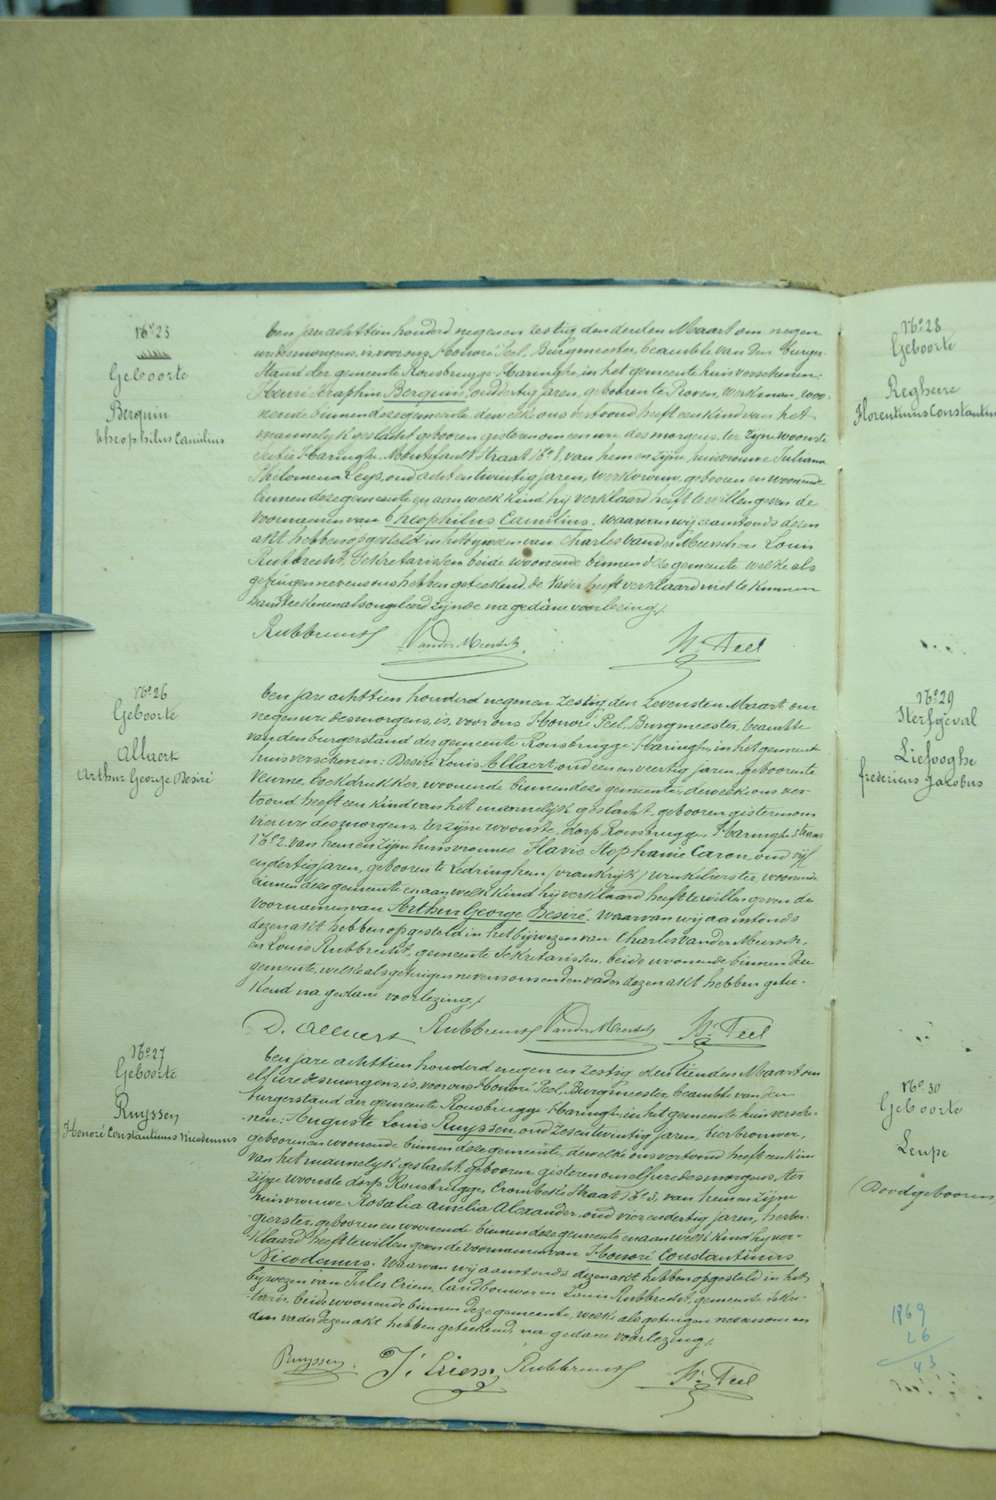 N° 25
Geboorte
Berquin
Theophilus Camilius
ten jare achttien honderd negen en zestig den derden Maart om negen
ure des morgens, is voor ons Honoré Peel, Burgmeester, beambte van den burger-
stand der gemeente Rousbrugge-Haringhe, in het gemeente huis verschenen:
Henri Seraphin Berquin, oud dertig jaren, geboren te Proven, werkman, woo-
nende binnen deze gemeente dewelke ons vertoond heeft een kind van het
mannelijk geslacht geboren gisteren om een ure des morgens, ter zijne woonste
sectie Haringhe straat N° 8, van hem en zijne huisvrouwe Juliana
Philomena Leys, oud acht en twintig jaren, werkvrouw, geboren en woonende
binnen deze gemeente en aan welk kind hij verklaard heeft te willen geven de
voornamen van Theophilus Camilius. Waarvan wij aanstonds dezen
akt hebben opgesteld in het bijwezen van Charles Vander Meersch en Louis
Rubbrecht, Sekretarissen beide woonende binnen deze gemeente welke als
getuigen nevens ons hebben geteekend, de Vader heeft verklaard niet te kunnen
handteekenen als ongeleerd zijnde na gedane voorlezing.
Rubbrecht VanderMeersch Hré Peel
N° 26
Geboorte
Allaert
Arthur George Desiré
ten jare achttien honderd negen en zestig den zevensten Maart om
negen ure des morgens, is, voor ons Honoré Peel, Burgmeester, beambte
van den burgerstand der gemeente Rousbrugge-Haringhe, in het gemeente
huis verschenen: Desiré Louis Allaert, oud een en veertig jaren, geboren te
Veurne, boekdrukker, woonende binnen deze gemeente, dewelke ons ver-
toond heeft een kind van het mannelijk geslacht, geboren gisteren om
vier ure des morgens, ter zijne woonste, dorp Rousbrugge, Haringhe straat
N° 2 van hem en zijne huisvrouwe Flavie Stephanie Caron, oud vijf
en dertig jaren, geboren te Ledringhem (vrankrijk) winkelierster, woonende
binnen deze gemeente en aan welk kind hij verklaard heeft te willen geven de
voornamen van Arthur George Desiré. Waarvan wij aanstonds
dezen akt hebben opgesteld in het bijwezen van Charles Vander Meersch
en Louis Rubbrecht, gemeente Sekretarissen, beide woonende binnen deze
gemeente, welke als getuigen nevens ons en den vader dezen akt hebben getee-
kend na gedane voorlezing.
D. Allaert Rubbrecht VanderMeersch Hré Peel
N° 27
Geboorte
Ruyssen
Honoré Constantinus Nicodemus
ten jare achttien honderd negen en zestig den tienden Maart om
elf ure des morgens, is, voor ons Honoré Peel, Burgmeester, beambte van den
burgerstand der gemeente Rousbrugge-Haringhe, in het gemeente huis versche-
nen: Auguste Louis Ruyssen, oud zes en twintig jaren, bierbrouwer,
geboren en woonende binnen deze gemeente, dewelke ons vertoond heeft een kind
van het mannelijk geslacht, geboren gisteren om elf ure des morgens, ter
zijne woonste dorp Rousbrugge, Crombeke Straat N° 3, van hem en zijne
huisvrouwe Rosalia Amelia Alexander, oud vier en dertig jaren, herber-
gierster, geboren en woonende binnen deze gemeente en aan welk kind hij ver-
klaard heeft te willen geven de voornamen van Honoré Constantinus
Nicodemus. Waarvan wij aanstonds dezen akt hebben opgesteld in het
bijwezen van Jules Criem, landbouwer en Louis Rubbrecht, gemeente Sekre-
taris, beide woonende binnen deze gemeente, welke als getuigen nevens ons en
den vader dezen akt hebben geteekend, na gedane voorlezing.
Ruyssen J. Criem Rubbrecht Hré Peel
N° 28
Geboorte
Regheere
Florentinus Constantin
N° 29
Sterfgeval
Liefooghe
fredericus Jacobus
N° 30
Geboorte
Leupe
(Doodgeboren
1869
26
43